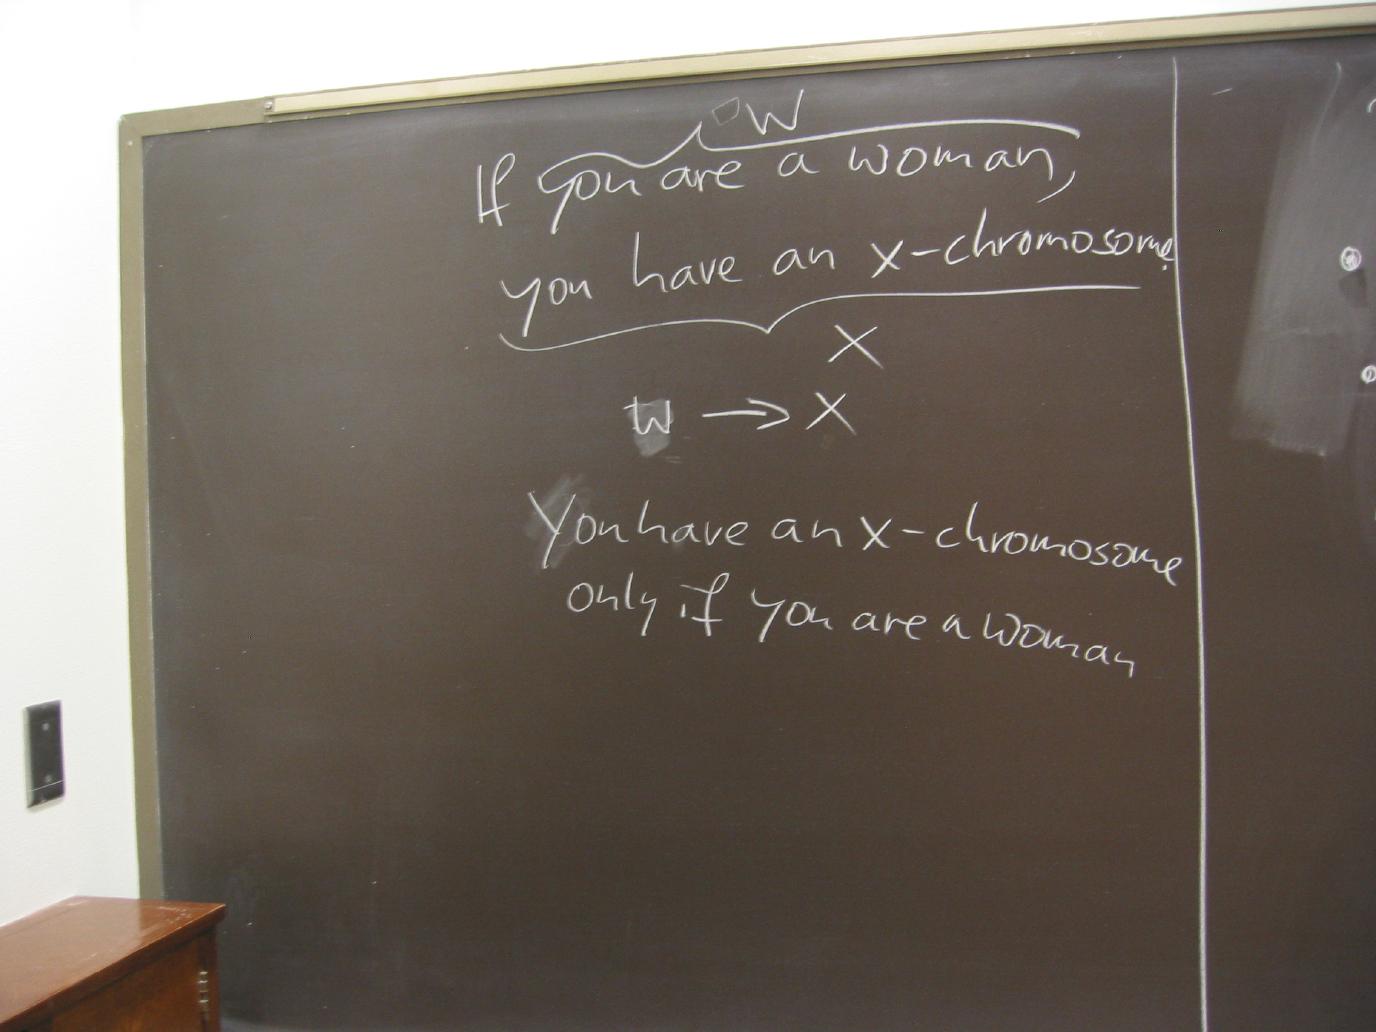 W
If you are a woman,
you have an x-chromosome.
X
W → X
You have an x-chromosome
only if you are a woman